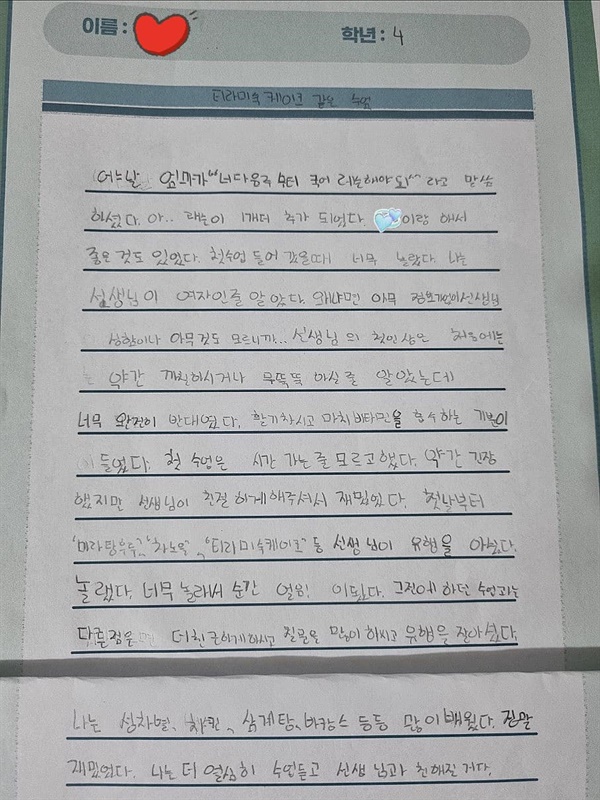 이름 :
학년 : 4
티라미숙케이크 같은 수업
어느날 엄마가 "너다음주부터 국어 레슨해야돼" 라고 말씀
하셨다. 아.. 레슨이 1개더 추가 되었다. 이랑 해서
좋은 것도 있었다. 첫수업 들어 갔을때 너무 놀랐다. 나는
선생님이 여자인줄 알았다. 왜냐면 아무 선생님
상황이나 아무것도 모르니까.. 선생님 의 첫인상은 처음에는
약간 까칠하시거나 무뚝뚝 하실 줄 알았는데
너무 완전히 반대였다. 활기차시고 마치 비타민을 흡수하는 기분이
들었다. 첫 수업은 시간 가는 줄 모르고했다. 약간 긴장
했지만 선생님이 친절 하게 해주셔서 재밌었다. 첫날부터
"티라미숙케이크" 등 선생님이 유행을 아셨다.
놀랬다. 너무 놀라서 순간 얼음이 됬다. 그전에 하던 수업과는
다른점은 더친근하게하시고 질문을 많이 하시고 유행을 잘아셨다.
나는 성차별, 치킨, 삼계탕, 바캉스 등등 많이배웠다. 정말
재밌었다. 나는 더 열심히 수업듣고 선생님과 친해질 거다.